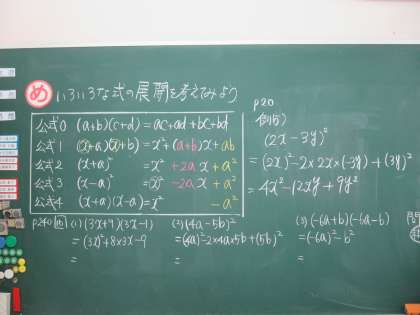 め いろいろな式の展開を考えてみよう
公式0 (a+b)(c+d)=ac+ad+bc+bd
公式1 (x+a)(x+b)=x²+(a+b)x+ab
公式2 (x+a)²=x²+2ax+a²
公式3 (x-a)²=x²-2ax+a²
公式4 (x+a)(x-a)=x²-a²
p20
例5)
(2x-3y)²
=(2x)²-2×2x×(-3y)+(3y)²
=4x²-12xy+9y²
(1) (3x+9)(3x-1)
=(3x)²+8×3x-9
=
(2) (4a-5b)²
=(4a)²-2×4a×5b+(5b)²
=
(3) (-6a+b)(-6a-b)
=(-6a)²-b²
=